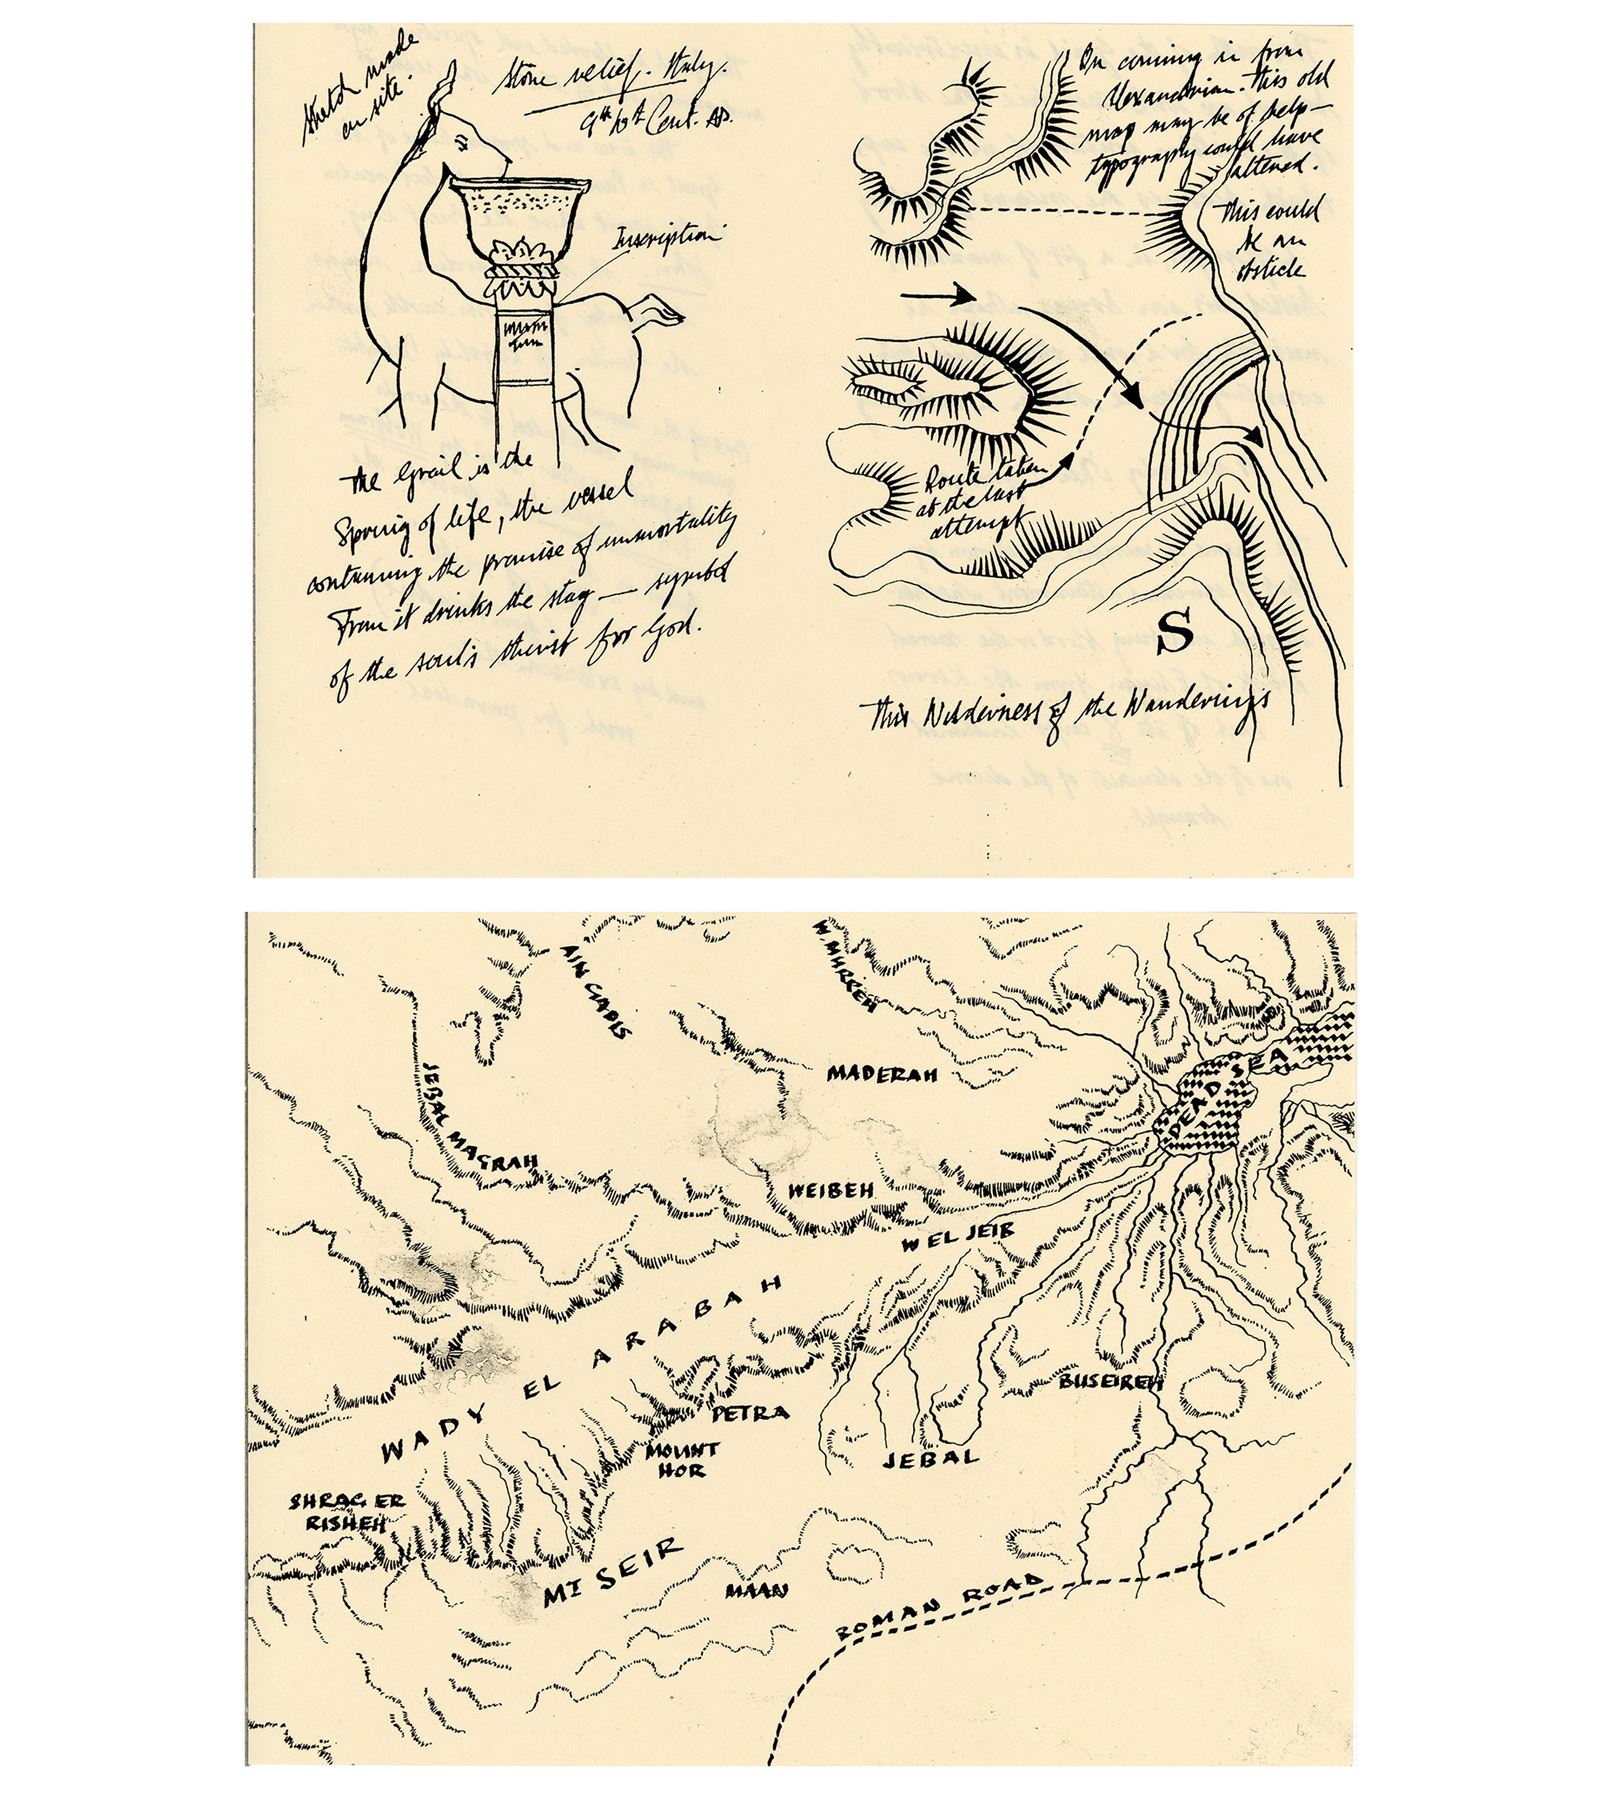 Sketch made
on site.
Stone relief. Italy.
9th 10th Cent. AD.
Inscription
the Grail is the
Spring of life, the vessel
containing the promise of immortality
From it drinks the stag — symbol
of the soul's thirst for God.
On coming in from
Alexandria. this old
map may be of help —
typography could have
altered.
this could
be an
obsticle
Route taken
at the last
attempt
S
this Wilderness of the Wanderings
AIN GADIS
W. MURREH
JEBAL MAGRAH
MADERAH
DEAD SEA
WEIBEH
W EL JEIB
WADY EL ARABAH
PETRA
MOUNT
HOR
BUSEIREH
JEBAL
SHRAG ER
RISHEH
MT SEIR
MAAN
ROMAN ROAD